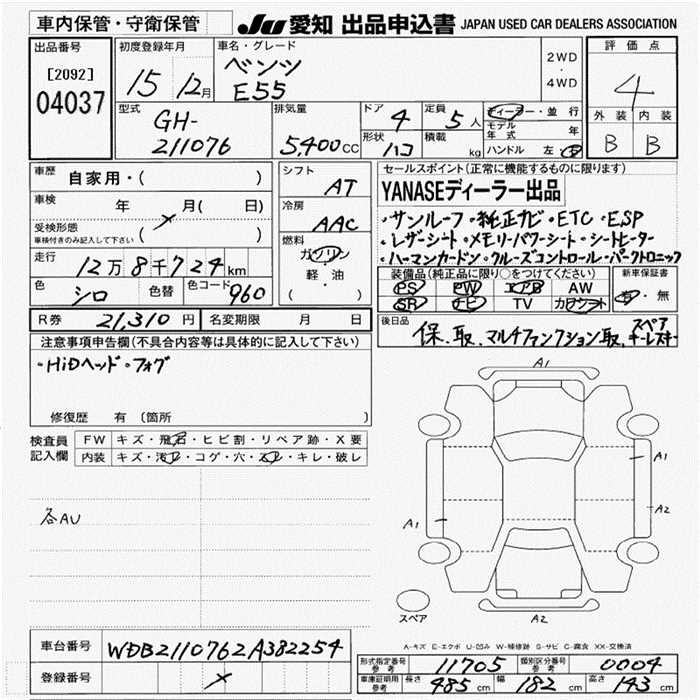 車内保管・守衛保管
JU 愛知 出品申込書 JAPAN USED CAR DEALERS ASSOCIATION
出品番号
[2092]
04037
初度登録年月
15 12月
車名・グレード
ベンツ
E55
2WD
・
4WD
評価点
4
外装 内装
B B
型式
GH-
211076
排気量
5,400cc
ドア 4
形状 ハコ
定員 5人
積載 kg
ディーラー・並行
モデル年式 年
ハンドル 左・右
車歴 自家用・( )
車検 年 月( 日)
受検形態
車検付きのみ記入して下さい ( ) ×
走行 12万8千724km
色 シロ 色替 色コード 960
R券 21,310円 名変期限 月 日
シフト AT
冷房 AAC
燃料 ガソリン
軽・油
( )
セールスポイント(正常に機能するものに限ります)
YANASEディーラー出品
・サンルーフ・純正ナビ・ETC・ESP
・レザーシート・メモリーパワーシート・シートヒーター
・ハーマンカードン・クルーズコントロール・パークトロニック
装備品(純正品に限り○をつけてください) 新車保証書
PS PW エアB AW
SR ナビ TV カワシート
有・無
後日品 保、取、マルチファンクション取、スペアキーレスキー
注意事項申告欄(不具合内容等は具体的に記入して下さい)
・HiDヘッド・フォグ
修復歴 有(箇所
検査員
記入欄
FW キズ・飛石・ヒビ割・リペア跡・X要
内装 キズ・汚レ・コゲ・穴・スレ・キレ・破レ
各AU
A1
A1
A2
A1
A2
スペア
A-キズ E-エクボ U-凹み W-補修跡 S-サビ C-腐食 XX-交換済
車台番号 WDB2110762A382254
登録番号 ×
形式指定番号 参考 11705 類別区分番号 参考 0004
車庫証明用 参考 長さ 485cm 幅 182cm 高さ 143cm